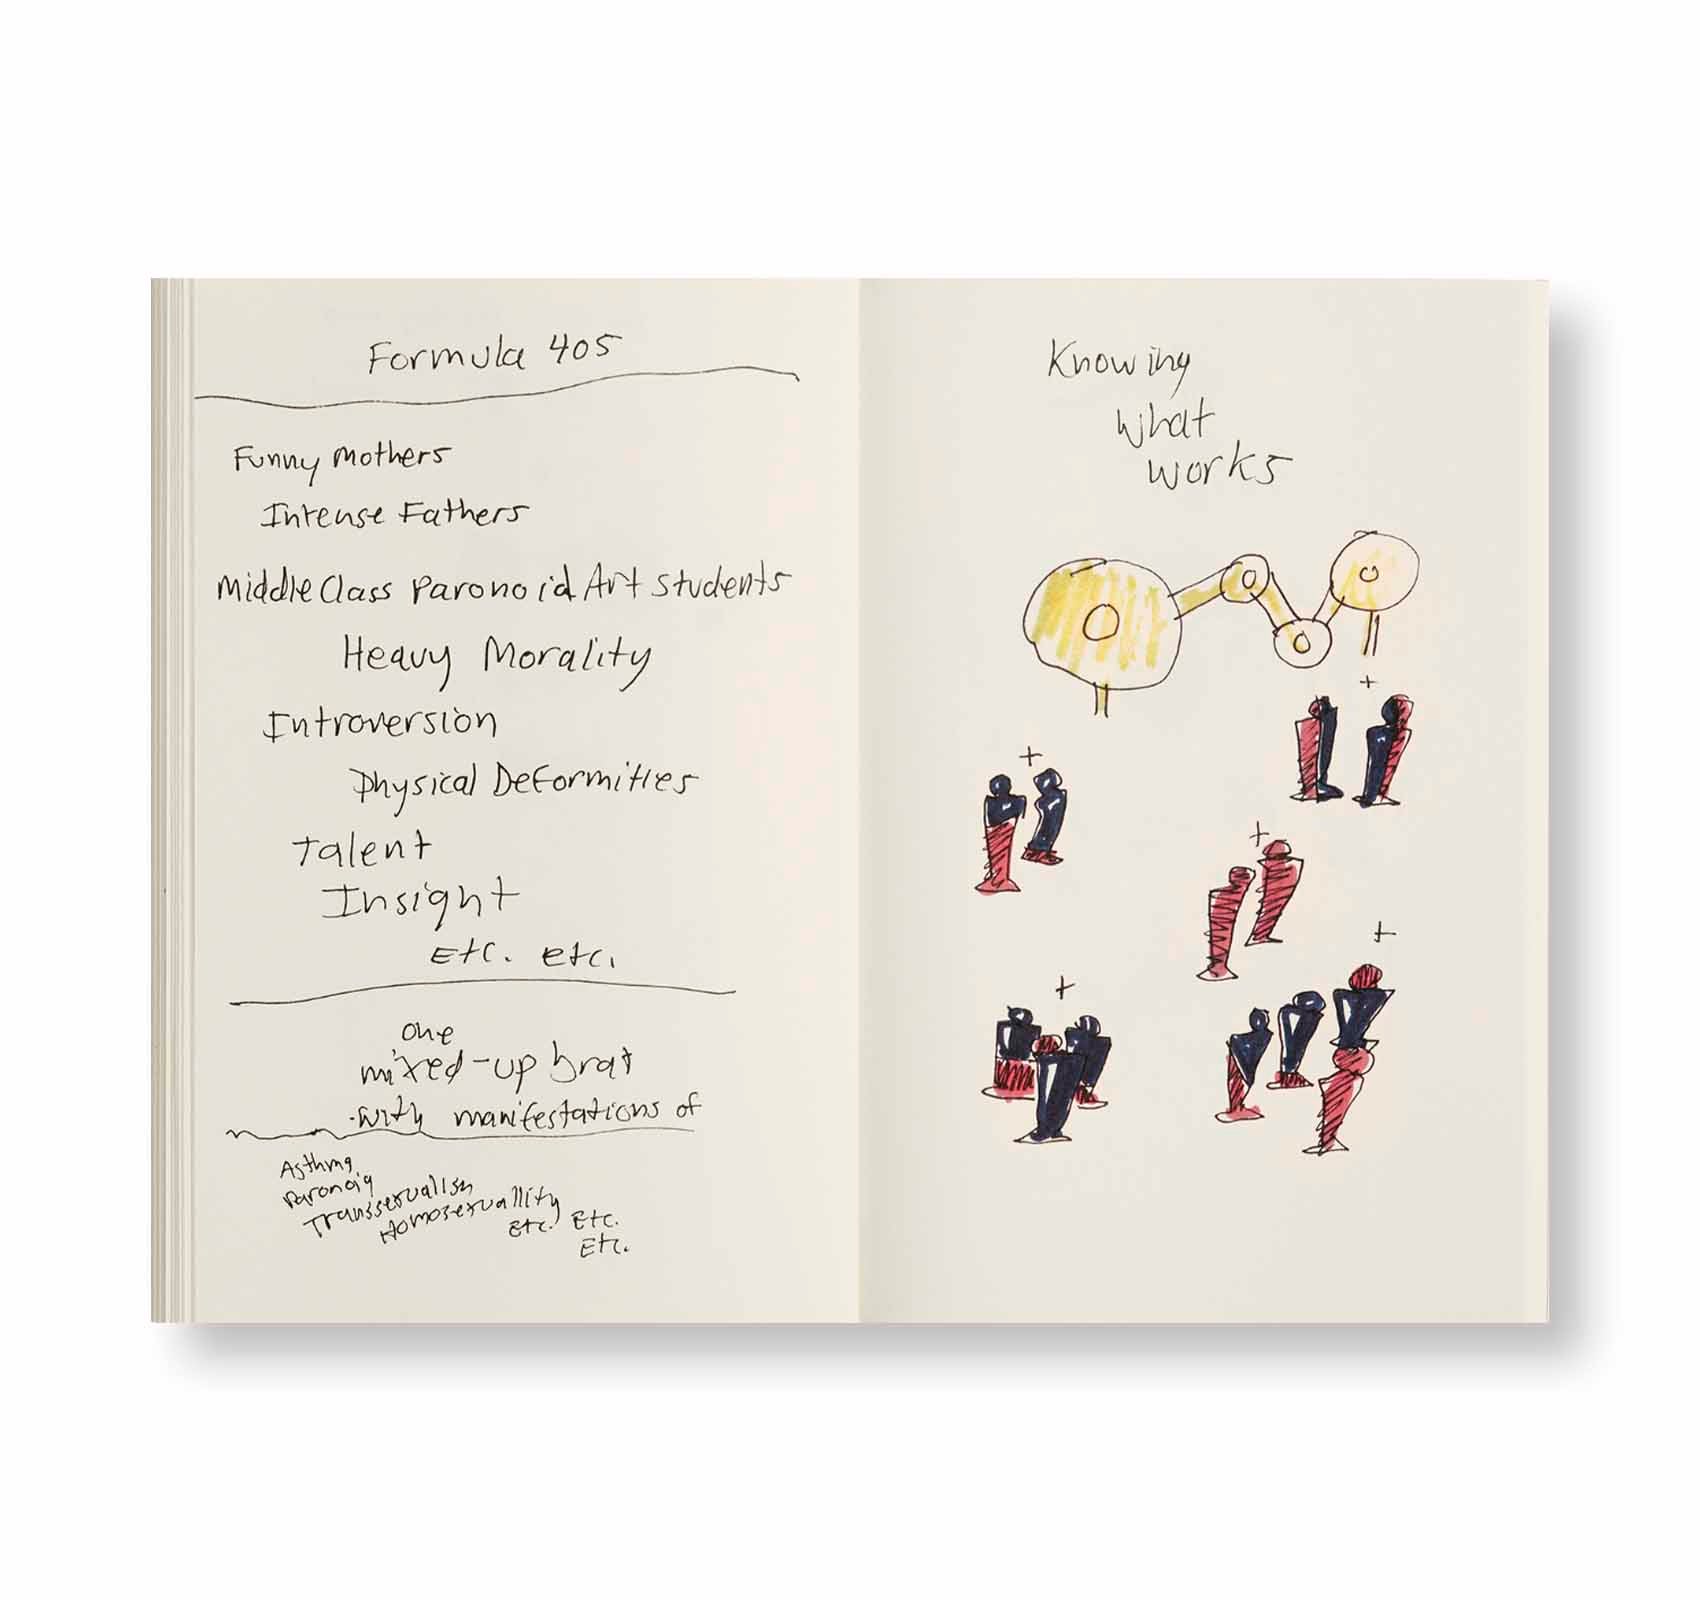 Formula 405
Funny Mothers
Intense Fathers
Middle Class Paronoid Art students
Heavy Morality
Introversion
Physical Deformities
Talent
Insight
Etc. etc.
one
mixed-up brat
-with manifestations of
Asthma
Paronoia
Transsexualism
Homosexuallity
Etc. Etc.
Etc.
Knowing
what
works